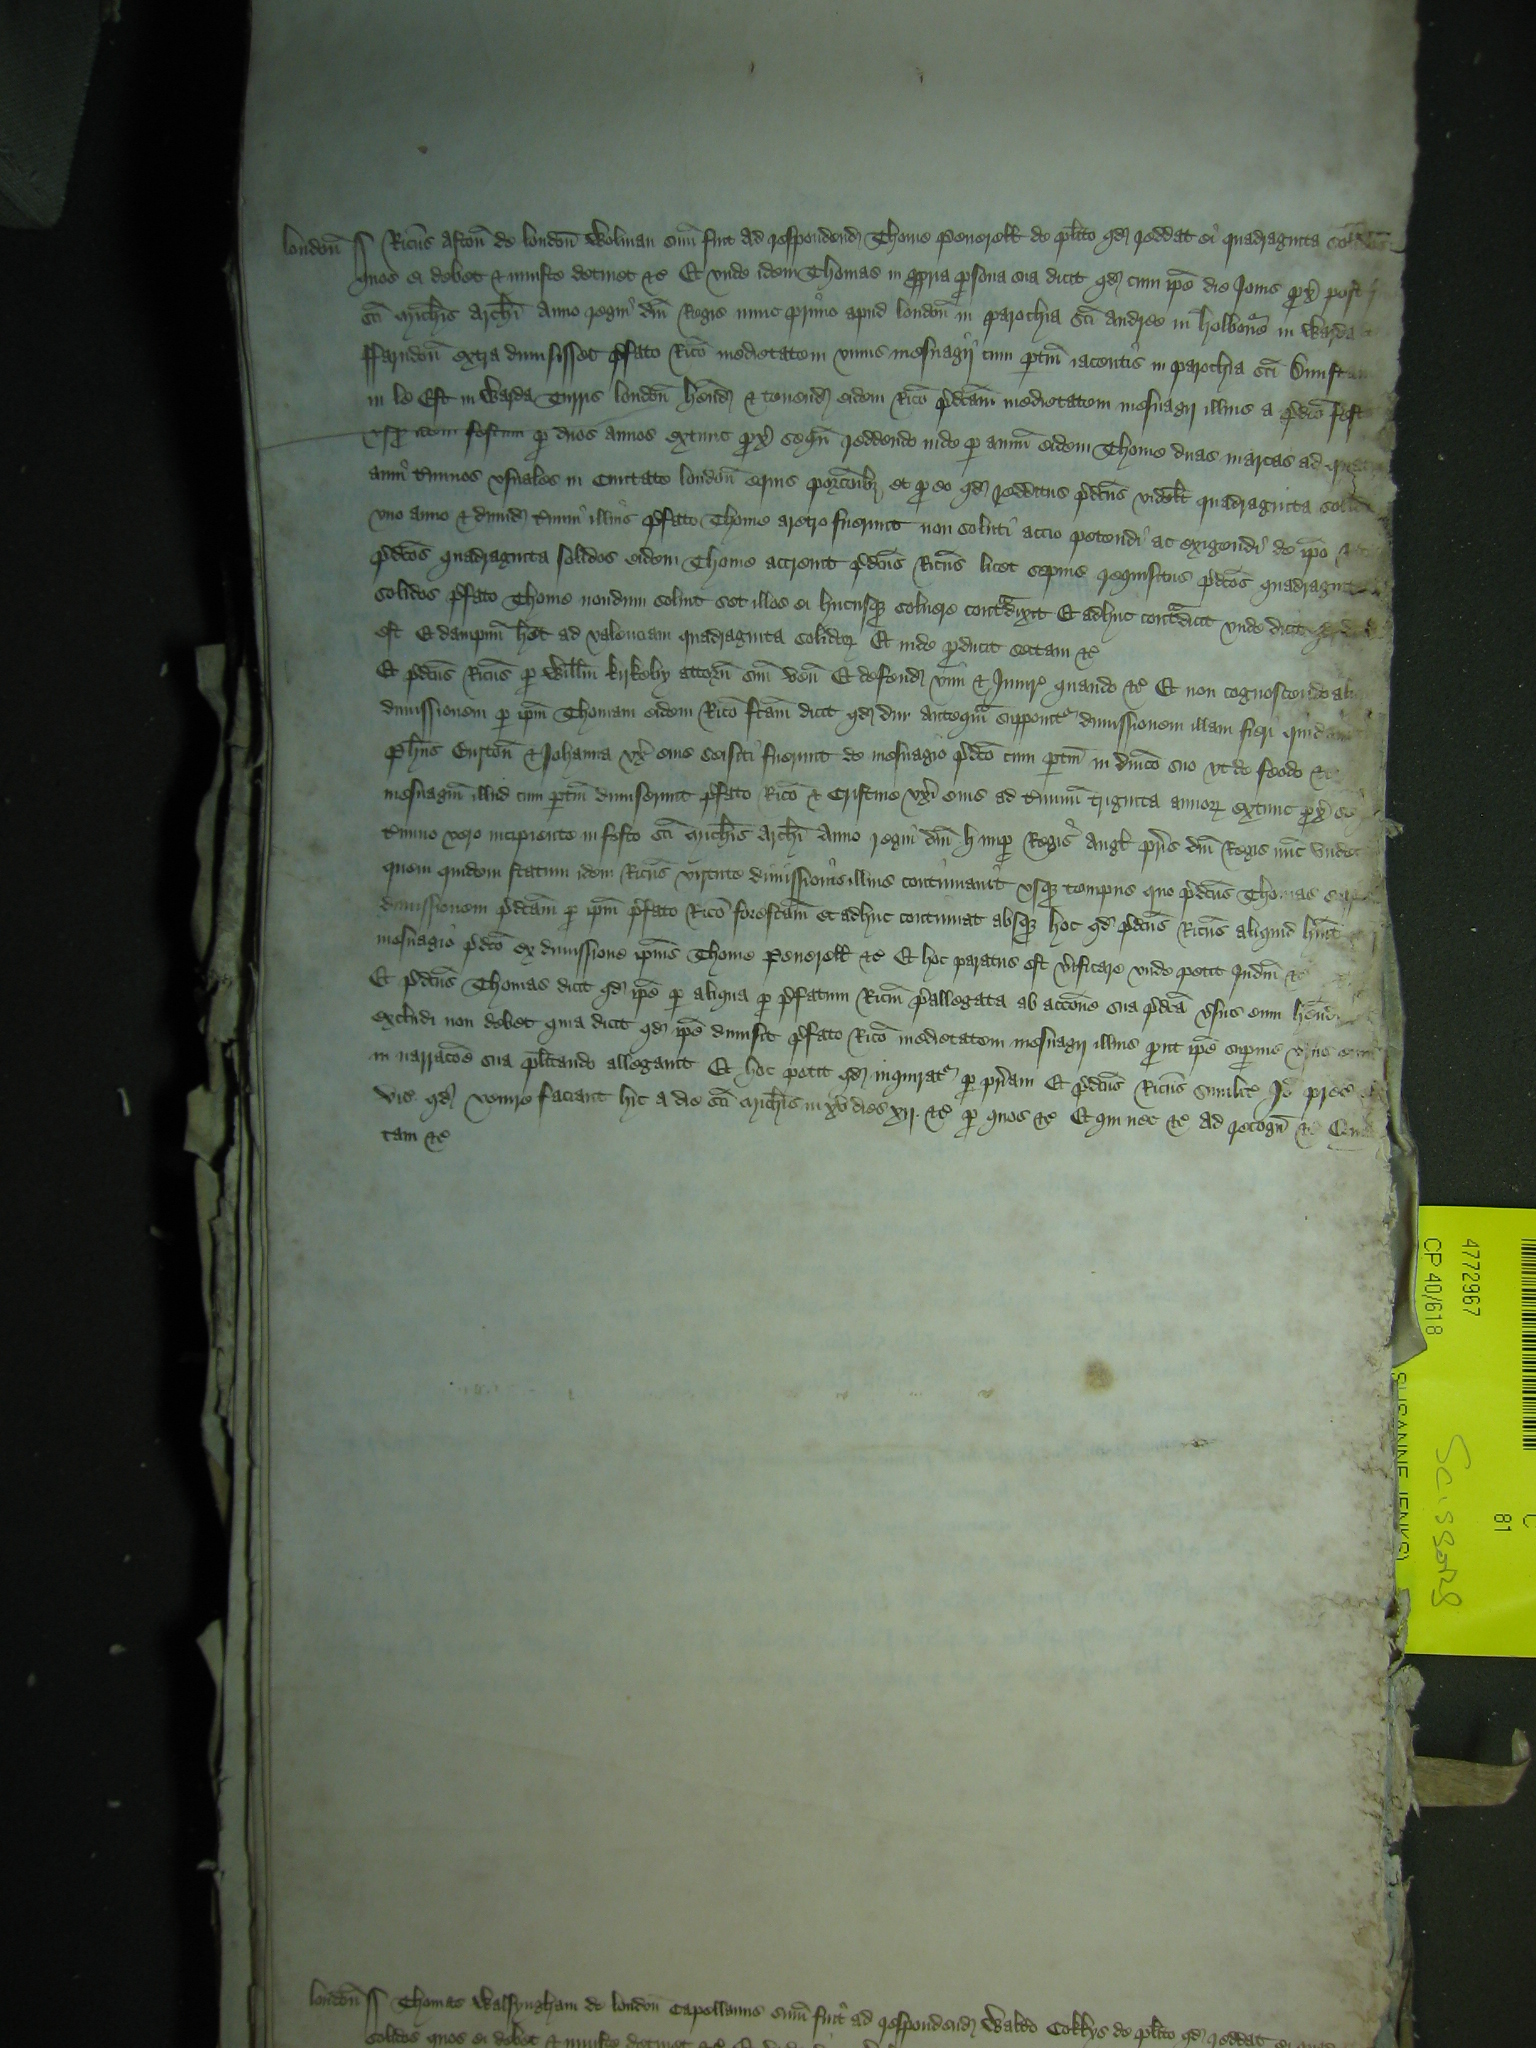 londoñ ss Ricūs Astoñ de londoñ Wolman sum̄ fuit ad respondend Thome Peuerell de pl̄ito qd reddat ei quadraginta solidos
quos ei debet & iniuste detinet &c Et vnde idem Thomas in ppria psona sua dicit qd cum ip̄e die Jouis px̄ post
sc̄i Mich̄is Arch̄i Anno regni dñi Regis nunc primo apud londoñ in parochia sc̄i Andree in holbourñe in Warda
ffarndoñ extra dimisisset p̄fato Rico medietatem vnius mesuagij cum ptiñ iacentis in parochia sc̄i Dunstan
in le Est in Warda Turris londoñ hend & tenend eidem Rico p̄dc̄am medietatem mesuagij illius a p̄dc̄o festo
vsq idem festum p duos annos extunc px̄ sequeñ reddendo inde p annū eidem Thome duas marcas ad
anni t̄minos vsuales in Ciuitate londoñ equis porcoībz et p eo qd redditus p̄dc̄us videlt quadraginta solid
vno anno & dimid t̄mini illius p̄fato Thome aretro fuerunt non soluti accio petendi ac exigendi de ip̄o
p̄dc̄os quadraginta solidos eidem Thome accreuit p̄dc̄us Ricūs licet sepius requisitus p̄dc̄os quadraginta
solidos p̄fato Thome nondum soluit set illos ei hucusq soluere contradixit Et adhuc contradicit vnde dicit
est Et dampnū het ad valenciam quadraginta solidor Et inde pducit sectam &c
Et p̄dc̄us Ricūs p Willm̄ kirkeby attorñ suū veñ Et defend vim & Iniur quando &c Et non cognoscendo
dimissionem p ip̄m Thomam eidem Rico fc̄am dicit qd diu anteqm supponit dimissionem illam fieri quidam
Ph̄us Eurtoñ & Johanna vx̄ eius seisiti fuerunt de mesuagio p̄dc̄o cum ptiñ in dn̄ico suo vt de feodo &c
mesuagiū illud cum ptiñ dimiserunt p̄fato Rico & Cristine vxi eius ad t̄minū triginta annor extunc px̄
t̄mino vero incipiente in festo sc̄i Mich̄is Arch̄i Anno regni dñi h nup Regis Angl pr̄is dñi Regis nūc
quem quidem statum idem Ricūs virtute dimissionis illius continuauit vsq tempus quo p̄dc̄us Thomas
dimissionem p̄dc̄am p ip̄m p̄fato Rico fore fc̄am et adhuc continuat absq hoc qd p̄dc̄us Ricūs aliquid h̄uit
mesuagio p̄dc̄o ex dimissione ip̄ius Thome Peuerell &c Et hoc paratus est v̄ificare vnde petit Iudm̄ &c
Et p̄dc̄us Thomas dicit qd ip̄e p aliqua p p̄fatum Ricm̄ p̄allegata ab accōne sua p̄dc̄a v̄sus eum
excludi non debet quia dicit qd ip̄e dimisit p̄fato Rico medietatem mesuagij illius put ip̄e supius v̄sus eum
in narracōe sua pl̄itando allegauit Et hoc petit qd inquirat p pr̄iam Et p̄dc̄us Ricūs similit̄ Jo prec
vic qd venire faciant hic a die sc̄i Mich̄is in xv dies xij &c p quos &c Et qui nec &c Ad recogñ &c
tam &c
londoñ ss Thomas Walsyngham de londoñ Capellanus sum̄ fuit ad respondend Waltō Cokkys de pl̄ito qd reddat ei
solidos quos ei debet & iniuste detinet &c
4772967
CP 40/618
SUSANNE JENKS)
81
Scissors